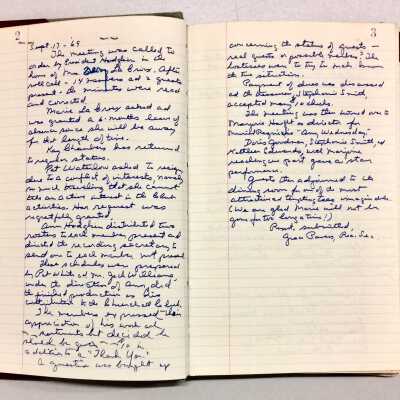 2
Sept. 17 - 69
The meeting was called to
order by President Hodgkin in the
home of Mrs. La Brose. After
roll call - 14 members and 2 guests
present - the minutes were read
and corrected.
Marie La Bross asked and
was granted a 6-months leave of
absence since she will be away
for that length of time.
Kay Chambers has returned
to regular status.
Pat Waterlow asked to resign
due to a conflict of interests, namely
so much traveling that she cannot
take an active interest in the Club
activities. Her request was
regretfully granted.
Ann Hodgkin distributed two
rosters to each member present and
directed the recording secretary to
send one to each member not present.
These schedules were prepared
by Pat White and Mr. Jack Williams,
under the direction of Ann, and
the finished production as his
contribution to the Brunch and
The members expressed their
appreciation of his work with
but decided he
should be given $10 in
addition to a "Thank You".
A question was brought up
3
concerning the status of guests -
real guests or possible members? The
hostesses were to try to each know
the situation.
Payment of dues was discussed
and the treasurer, Stephanie Smith,
accepted most, 10 checks.
The meeting was then turned over to
Marjorie Haight as director for
Muriel Resnick's "Any Wednesday."
Doris Gardner, Stephanie Smith, and
Kathleen Edwards, with Marjorie
reading one part gave a star
performance.
Guests then adjourned to the
dining room for one of the most
attractive and tempting teas imaginable.
(We are glad Marie will not be
gone for too long a time!)
Resp. submitted,
Grace Powers, Rec. Sec.